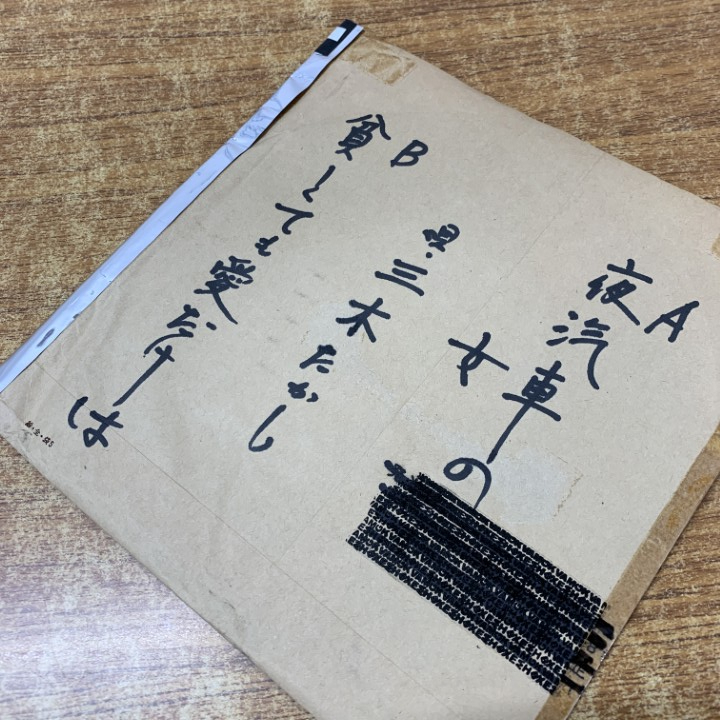 A
夜汽車の
女
唄・三木たかし
B
貧しくても愛だけは